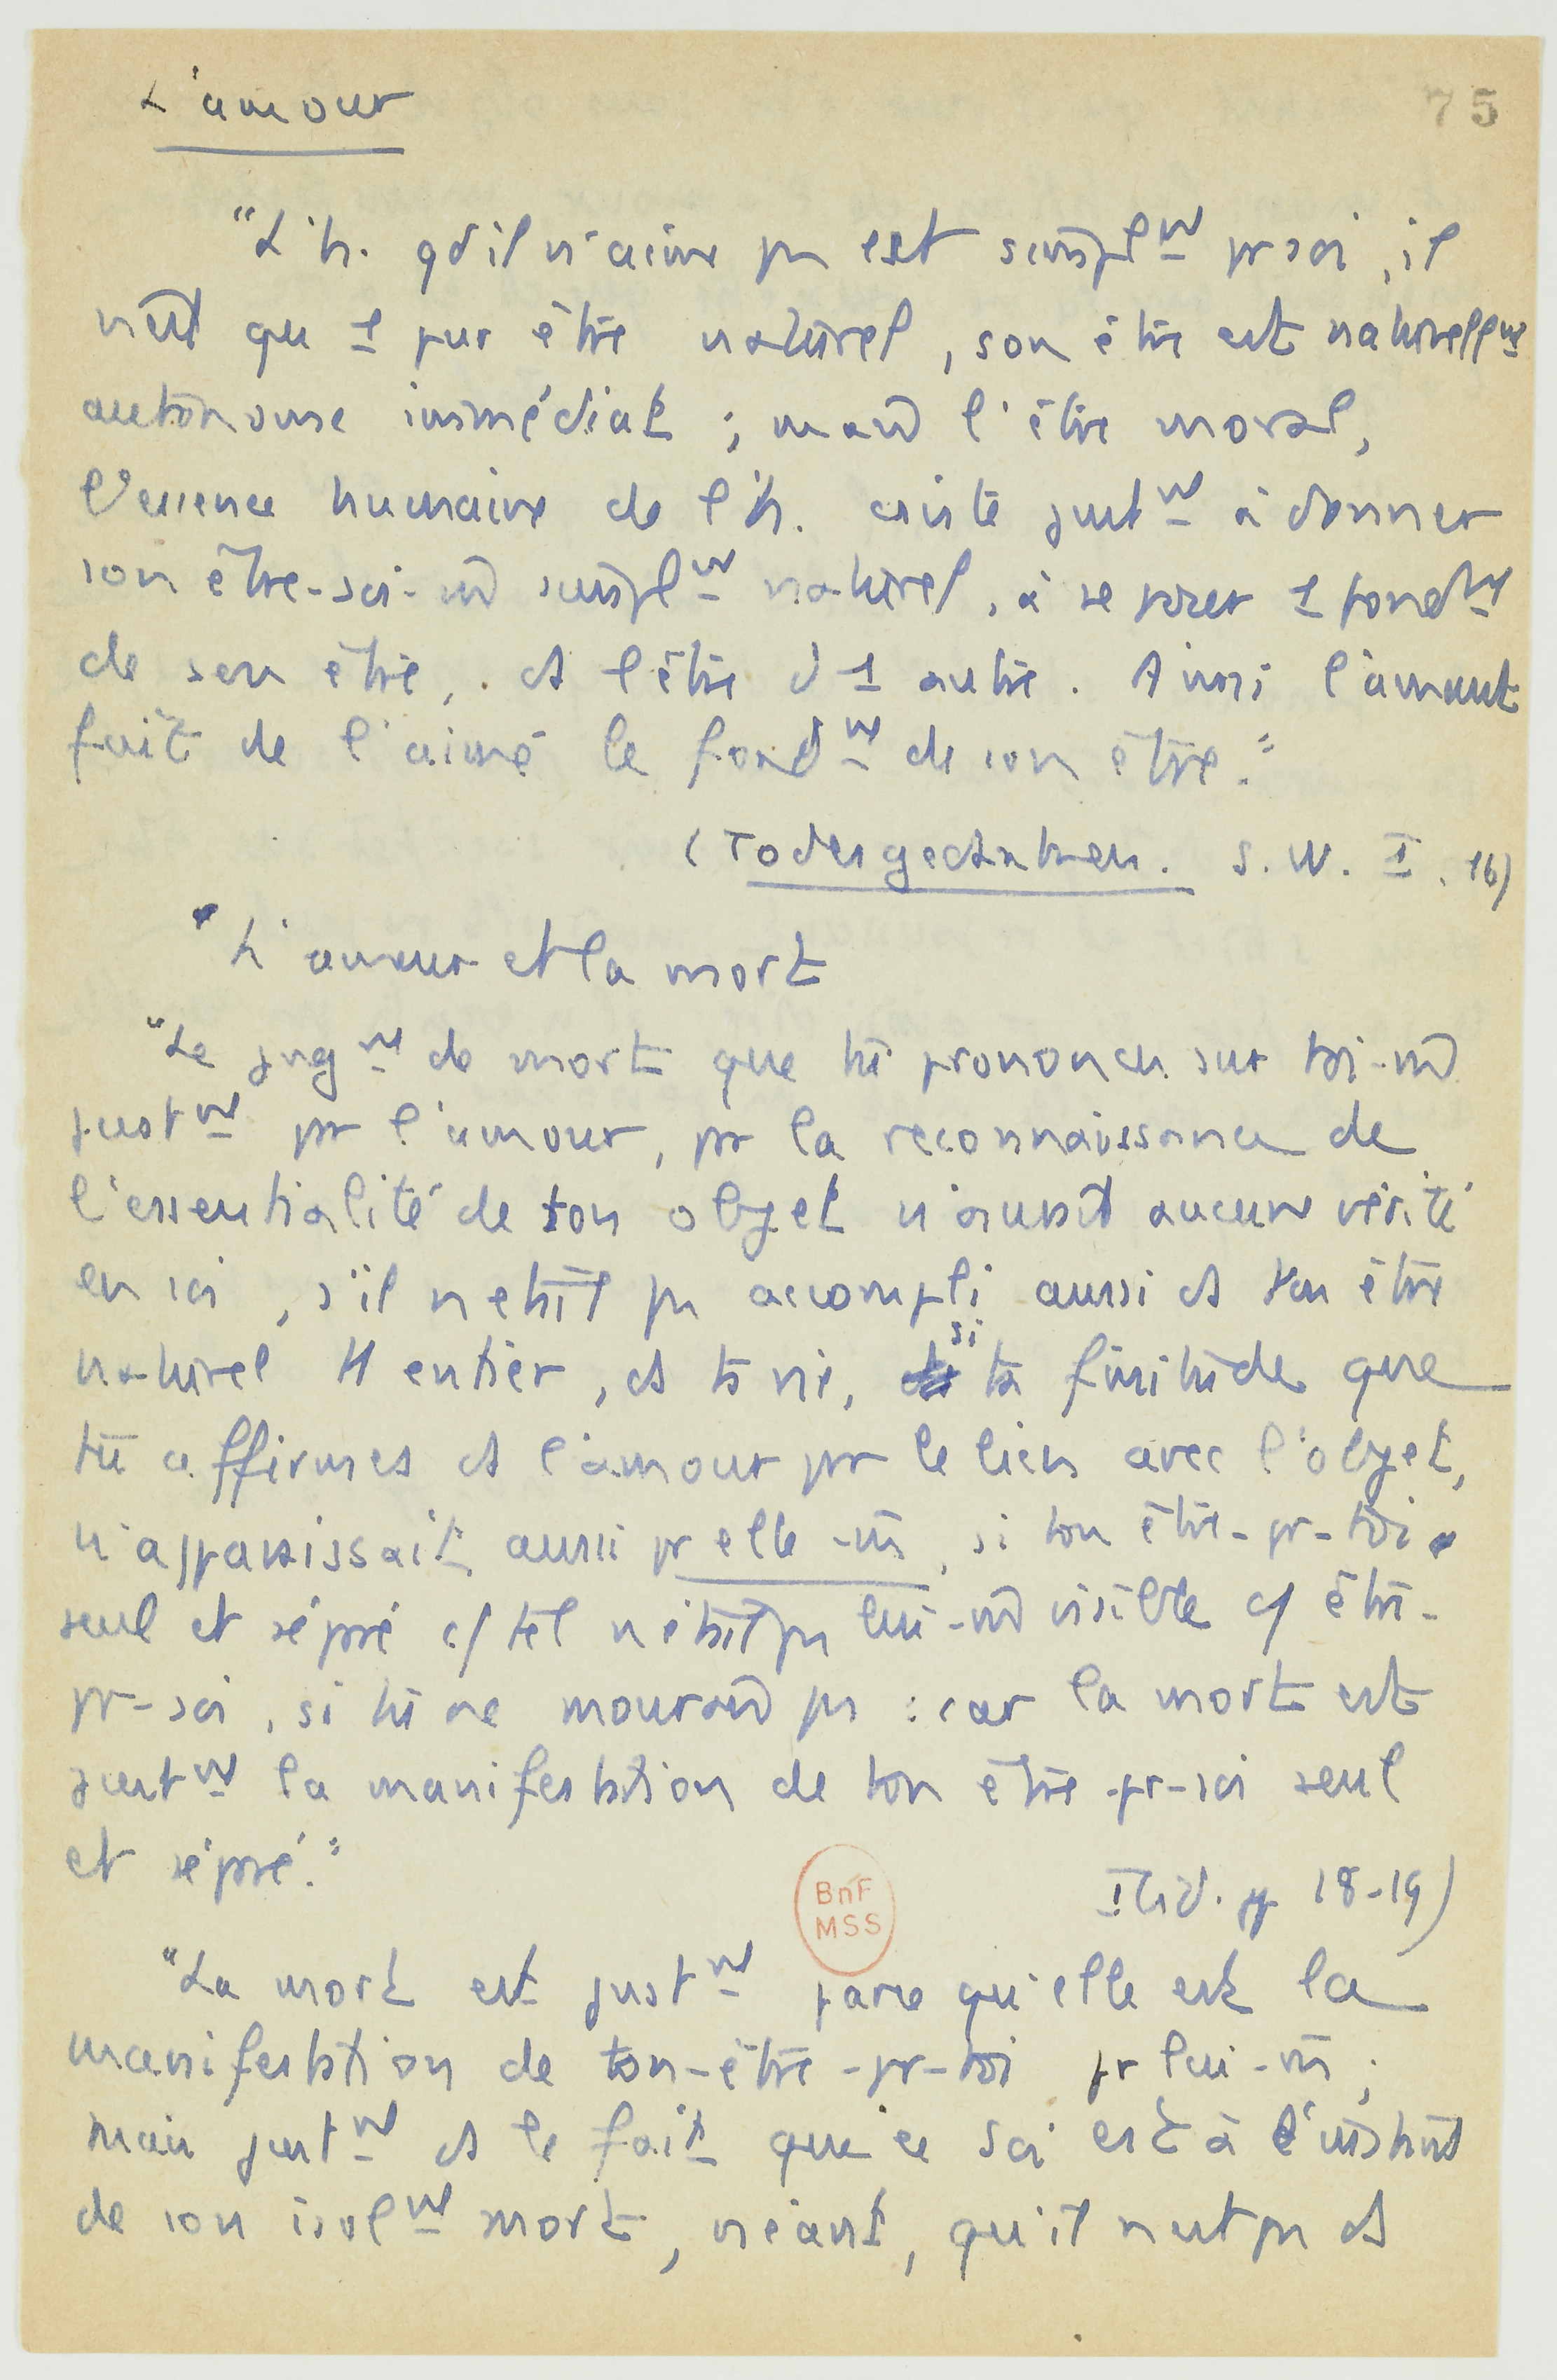 L'amour
75
"L'h. qd il n'aime pas est simplmt pr soi, il
n'est qu 1 pur être naturel, son être est naturellmt
autonome immédiat ; mais l'être moral,
l'essence humaine de l'h. csiste justmt à donner
son être-soi-mm simplmt naturel, à se poser 1 fondmt
de son être, ds l'être d'1 autre. Ainsi l'amant
fait de l'aimé le fondmt de son être."
(Todesgedanken. S. W. I. 16)
L'amour et la mort
"Le jugmt de mort que tu prononces sur toi-mm
justmt pr l'amour, pr la reconnaissance de
l'essentialité de ton objet n'aurait aucune vérité
en soi, s'il n'était pas accompli aussi ds ton être
naturel tt entier, ds ta vie, si ta finitude que
tu affirmes ds l'amour pr le lien avec l'objet,
n'apparaissait aussi pr elle-mm, si ton être-pr-toi
seul et séparé c/ tel n'était pas lui-mm visible c/ être-
pr-soi, si tu ne mourais pas : car la mort est
justmt la manifestation de ton être-pr-soi seul
et séparé."
Ibid. pp 18-19)
BnF
MSS
"La mort est justmt parce qu'elle est la
manifestation de ton-être-pr-toi pr lui-mm ;
mais justmt ds le fait que ce soi est à l'instant
de son isolmt mort, néant, qu'il n'est pas ds